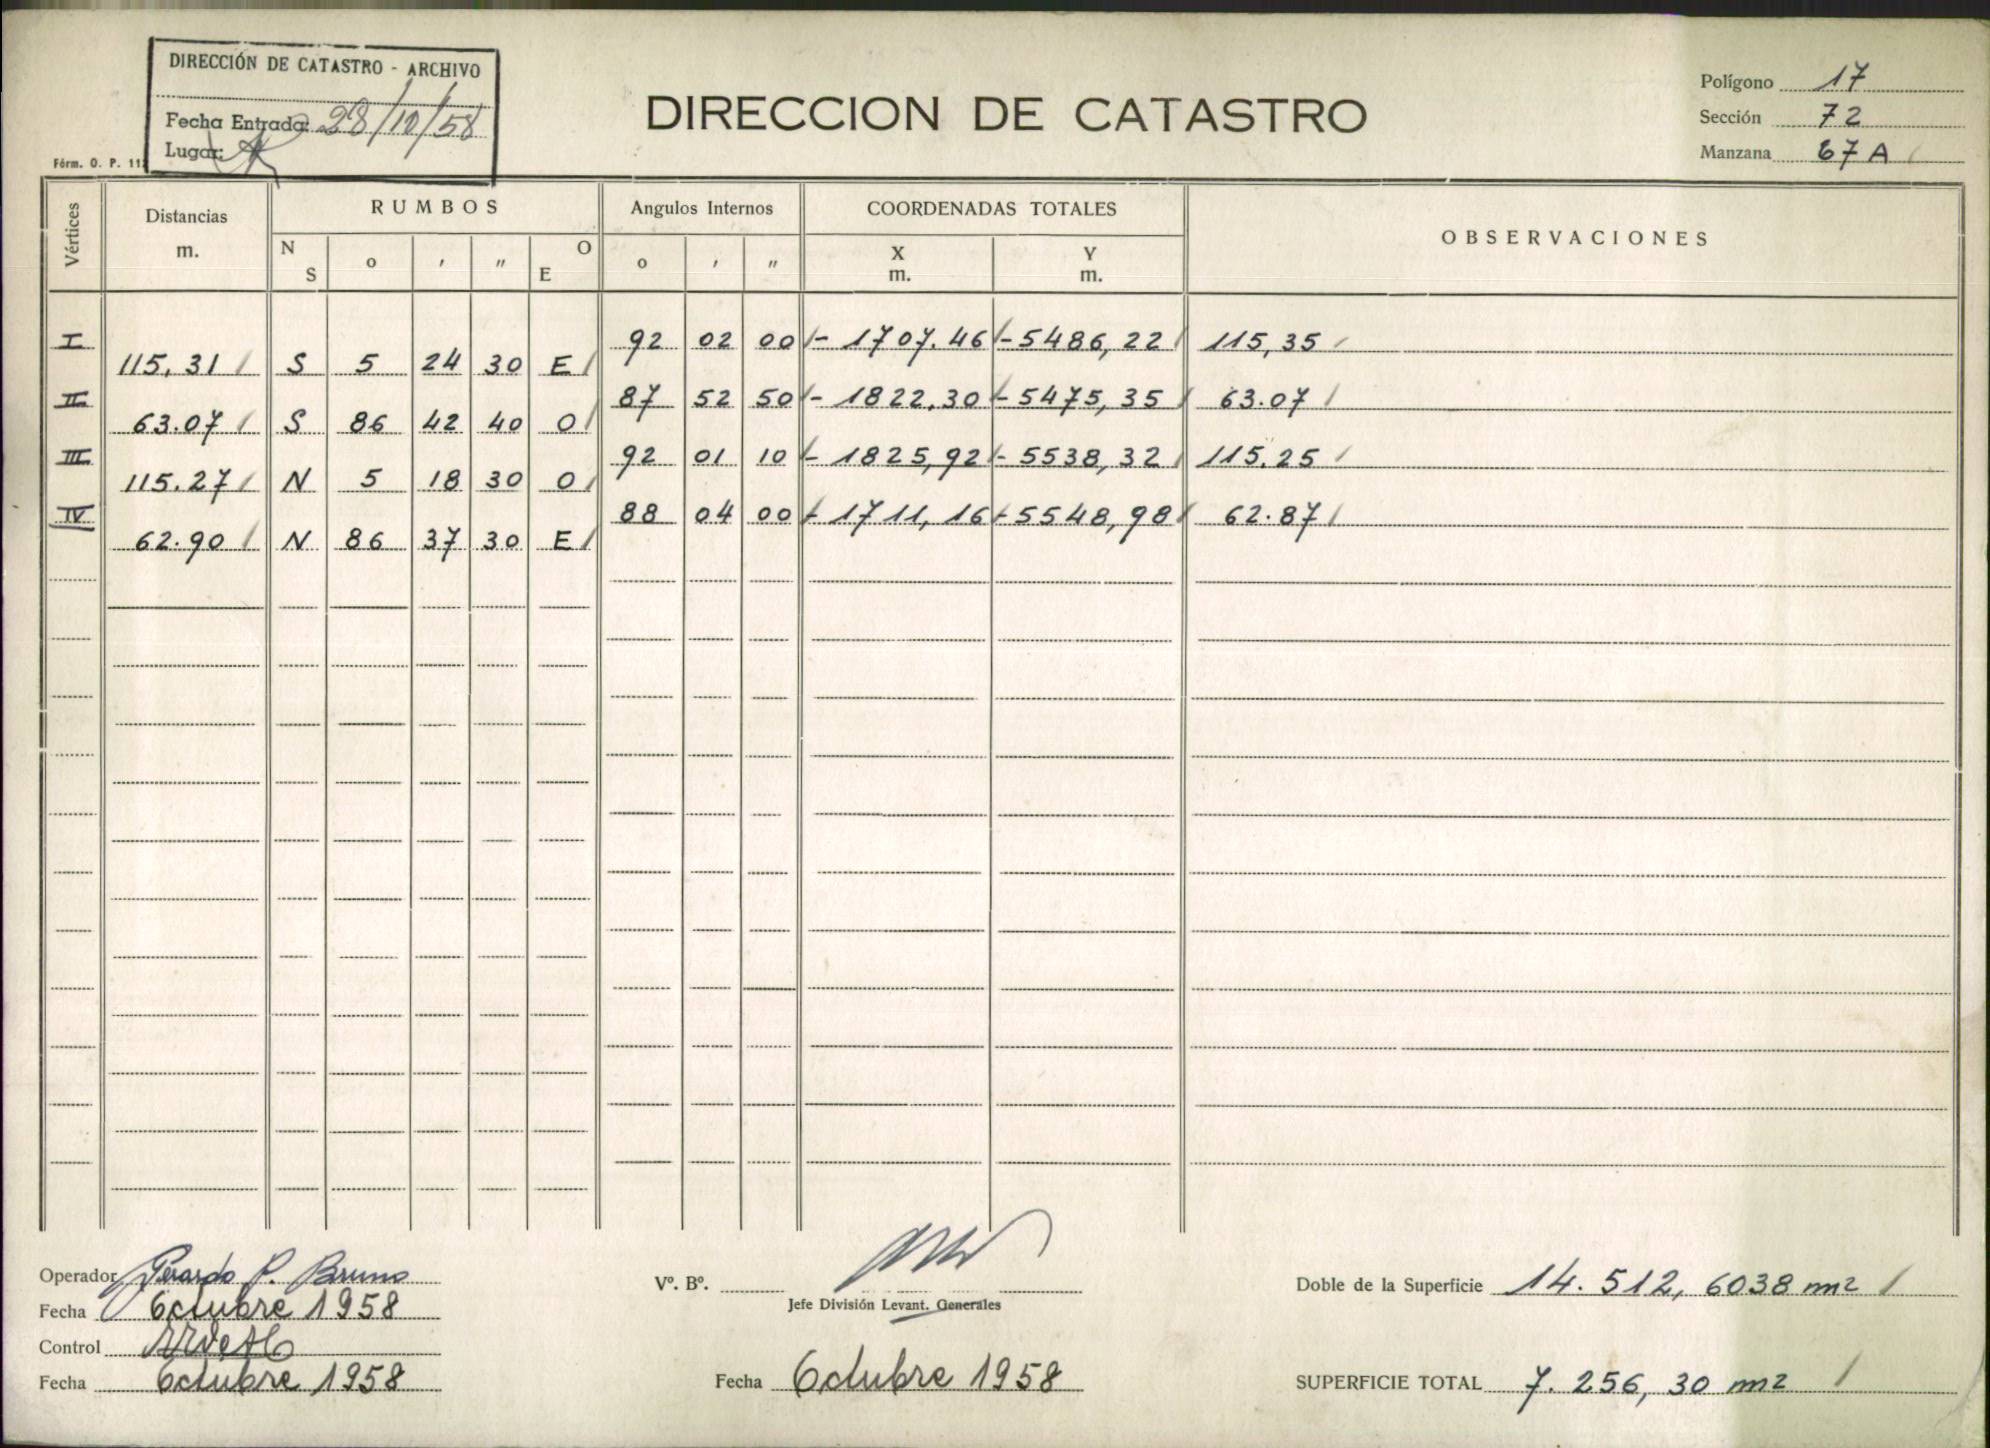 DIRECCIÓN DE CATASTRO - ARCHIVO
Fecha Entrada: 28/10/58
Lugar:
Fórm. O. P. 11
DIRECCION DE CATASTRO
Polígono 17
Sección 72
Manzana 67 A
Vértices Distancias m. RUMBOS Angulos Internos COORDENADAS TOTALES OBSERVACIONES
N S o ' " O E o ' " X m. Y m.
I 92 02 00 - 1707.46 - 5486,22 115,35
115,31 S 5 24 30 E
II 87 52 50 - 1822.30 - 5475,35 63.07
63.07 S 86 42 40 O
III 92 01 10 - 1825,92 - 5538,32 115.25
115.27 N 5 18 30 O
IV 88 04 00 - 1711,16 - 5548,98 62.87
62.90 N 86 37 30 E
Operador Gerardo P. Bruno
Fecha Octubre 1958
Control
Fecha Octubre 1958
Vº. Bº.
Jefe División Levant. Generales
Fecha Octubre 1958
Doble de la Superficie 14.512,6038 m2
SUPERFICIE TOTAL 7.256,30 m2